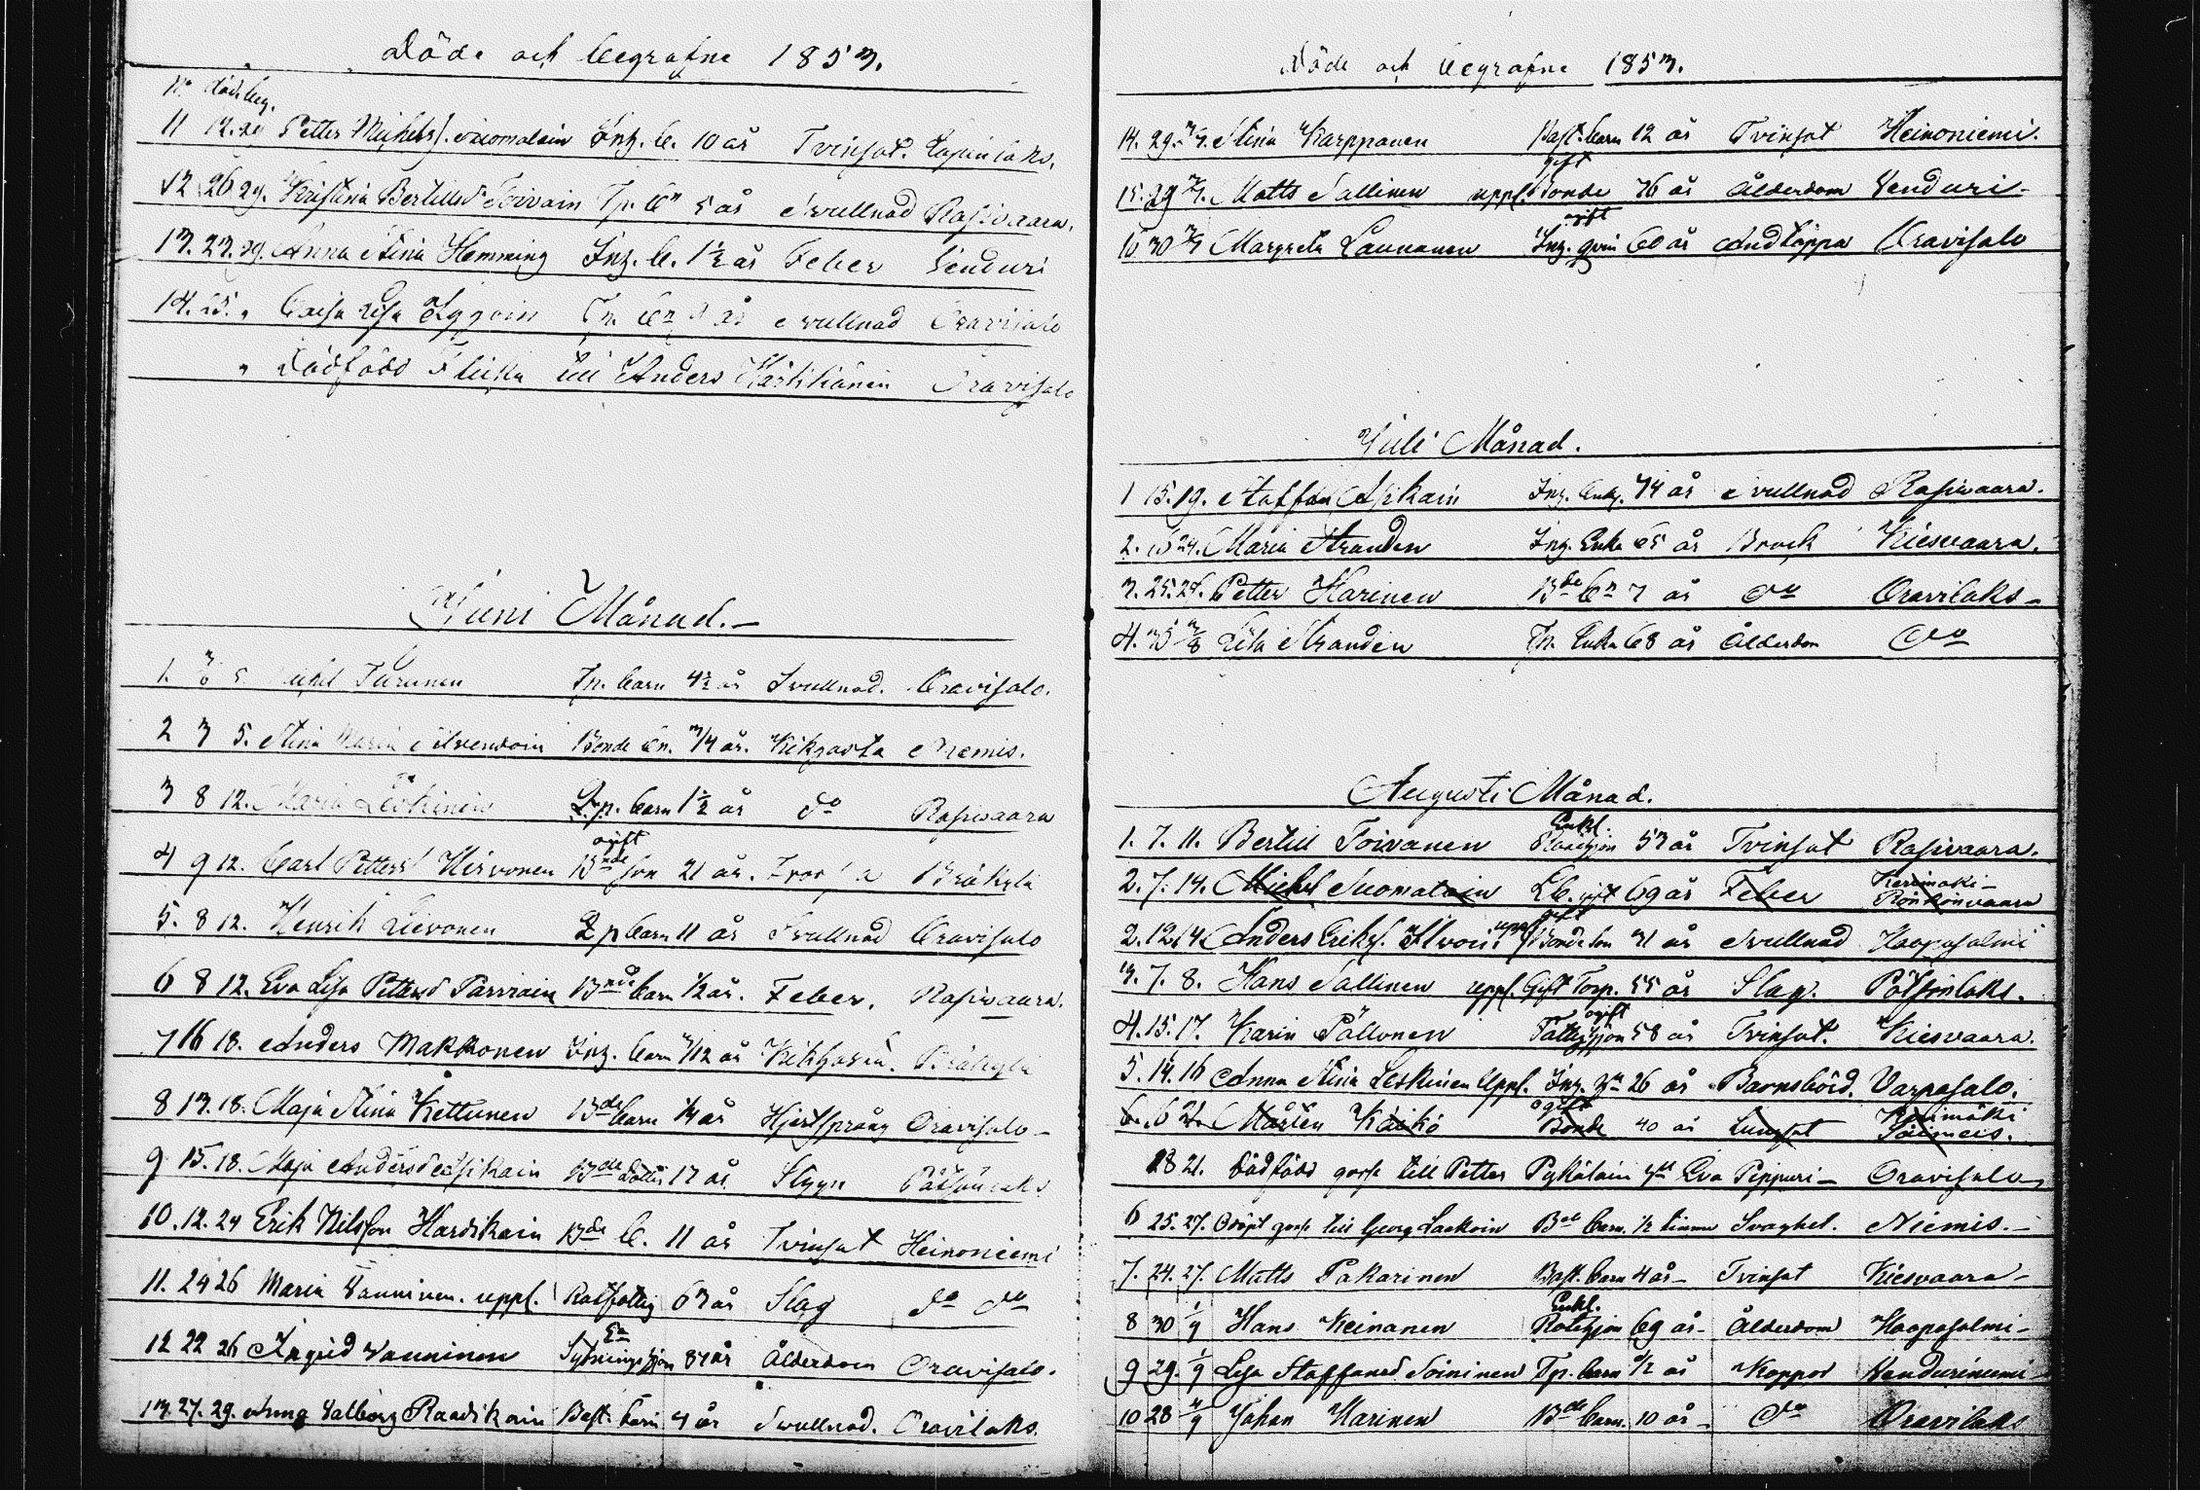 Döde och begrafne 1853.
No död. beg.
11 12. 29 Petter Michelss. Suomalain Inh. b. 10 år Tvinsot.
12 26 29. Kristina Bertilsd. Toivain Tp. bn 5 år Svullnad Rasivaara.
13. 23. 29. Anna Stina Hemming Inh. b. 1½ år Feber Venduri
14. 25. " Caisa Lisa Tp. bn år Svullnad Oravisalo
" Dödfödd Flicka till Anders Oravisalo
Juni Månad.
1. Michel Turunen Tp. barn år Svullnad. Oravisalo.
2 3 5. Stina Maria Bonde bn. 3/4 år. Kikhosta Niemis.
3 8 12. Maria Leskinen Lp. barn 1½ år do Rasivaara
4 9 12. Carl Petterss. Hirvonen ogift Bnde son 21 år. Bräkylä
5. 8 12. Henrik Lievonen Lp barn 11 år Svullnad Oravisalo
6 8 12. Eva Lisa Pettersd Parviain Bnde barn ½ år. Feber. Rasivaara.
7 16 18. Anders Makkonen Inh. barn /12 år Kikhosta. Bräkylä
8 13. 18. Maja Stina Kettunen Bde barn ¼ år Hjertsprång Oravisalo -
9 15. 18. Maja Andersd. Asikain Bde dotter 17 år. Styng
10. 12. 24 Erik Nilsson Hardikain Bde b. 11 år Tvinsot Heinoniemi
11. 24 26 Maria Vanninen. uppl. Rotfattig 63 år Slag do do
12 22 26 Ingrid Vanninen Sytningshjon En 87 år Ålderdom Oravisalo.
13. 27. 29. Anna Valborg Raadikain Bast. barn 4 år Svullnad. Oravilaks.
Döde och begrafne 1853.
14. 29. 3/7. Stina Karppanen Bast. barn 12 år Tvinsot Heinoniemi.
15. 29 3/7. Matts Sallinen uppl. gift Bonde 76 år Ålderdom Venduri -
16 30 3/7 Margreta Laukanen ogift Inh. qvin 60 år Andtäppa Oravisalo
Juli Månad.
1 15. 19. Staffan Asikain Inh. Enkl. 74 år Svullnad Rasivaara.
2. 16 24. Maria Stranden Inh. Enka 65 år Brock Kiesvaara.
3. 25. 27. Petter Karinen Bde bn 7 år do Oravilaks -
4. 30 3/8 Lisa Stranden Tp. Enka 68 år Ålderdom do
Augusti Månad.
1. 7. 11. Bertill Toivanen Enkl. Rotehjon 53 år Tvinsot Rasivaara.
2. 7. 14. Michel Suomalain Lb. gift 69 år Feber Kerimäki - Rönkönvaara
2. 12 14. Anders Erikss. uppl. gift Bonde son 31 år Svullnad Haapasalmi
3. 7. 8. Hans Sallinen uppl. Gift Torp. 55 år Slag. Pötsönlaks.
4. 15. 17. Karin Pällonen ogift Fattighjon 58 år Tvinsot. Kiesvaara.
5. 14. 16 Anna Stina Leskinen uppl. Inh. Hu 26 år Barnsbörd. Varpasalo.
6. 16 21. Mårten Käikö ogift Bonde 40 år Lungsot Kerimäki
18 21. Dödfödd gosse till Petter Pykäläin Hu Eva Pippuri - Oravisalo -
6 25. 27. Odöpt gosse till Georg Laakoin Bde barn. ½ timme Svaghet. Niemis. -
7. 24. 27. Matts Pakarinen Bast. barn 4 år - Tvinsot Kiesvaara -
8 30 1/9 Hans Keinanen Enkl. Rotehjon 69 år - Ålderdom Haapasalmi -
9 29. 1/9 Lisa Staffansd. Soininen Tp. barn ½ år Koppor Vanduriniemi -
10 28 4/9 Johan Karinen Bde barn. 10 år - do Oravilaks